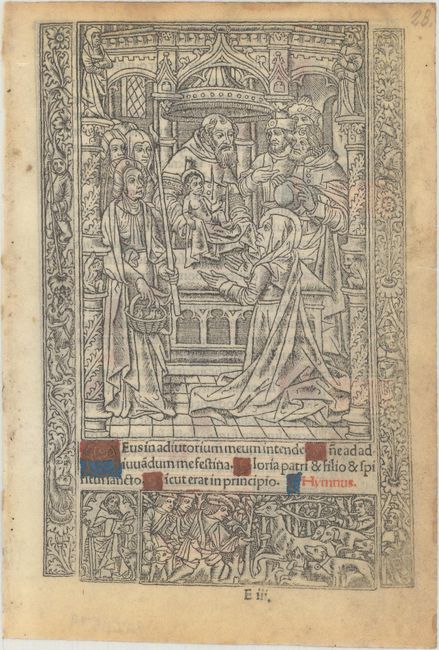 28.
Eus in adiutorium meum intende ñe ad ad
iuuãdum me festina. loria patri & filio & spi
ritui sancto. icut erat in principio. Hymnus.
E iii.